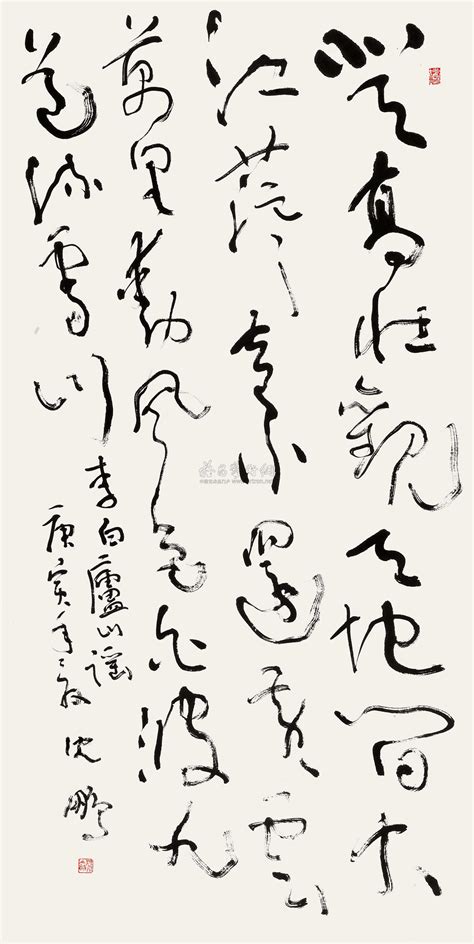 登高壯觀天地間大
江茫〻去不還黃雲
萬里動風色白波九
道流雪山
李白廬山謠
庚寅年 沈鵬